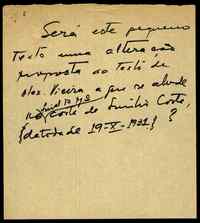 Será este pequeno
texto uma alteração
proposta ao texto de
Alex. Vieira, a que se alude
na carta de Emílio Costa,
(datada de 19-X-1931) ?